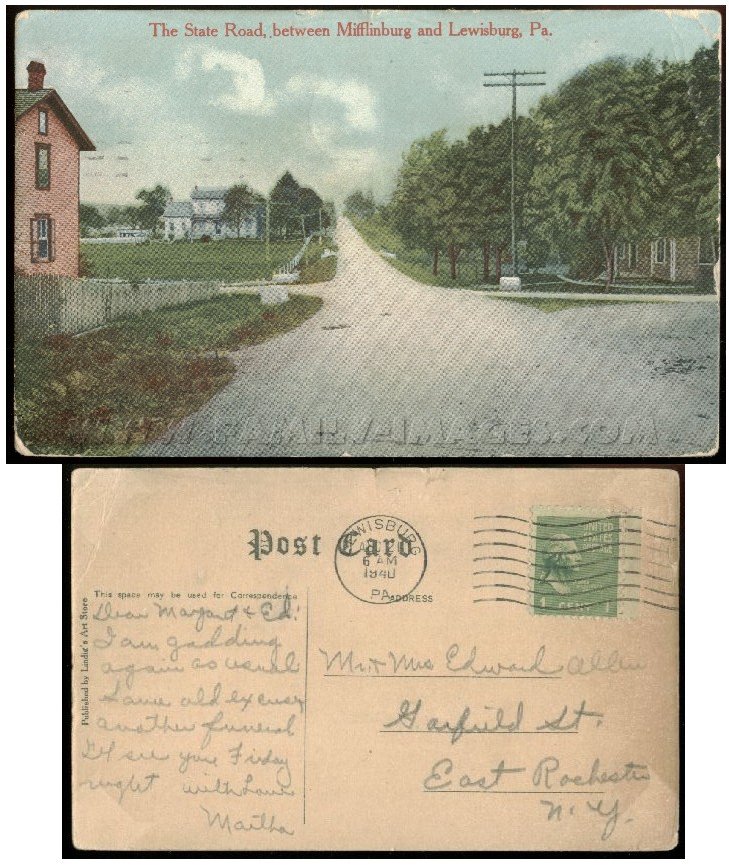 The State Road, between Mifflinburg and Lewisburg, Pa.
Post Card
LEWISBURG
6 AM
1940
PA.
UNITED
STATES
1 CENT 1
This space may be used for Correspondence
ADDRESS
Published by Lindig's Art Store
Dear Margaret & Ed:
I am gadding
again as usual
Same old excuse
another funeral
I'll see you Friday
night with Love
Martha
Mr & Mrs Edward Allen
Garfield St.
East Rochester
N. Y.